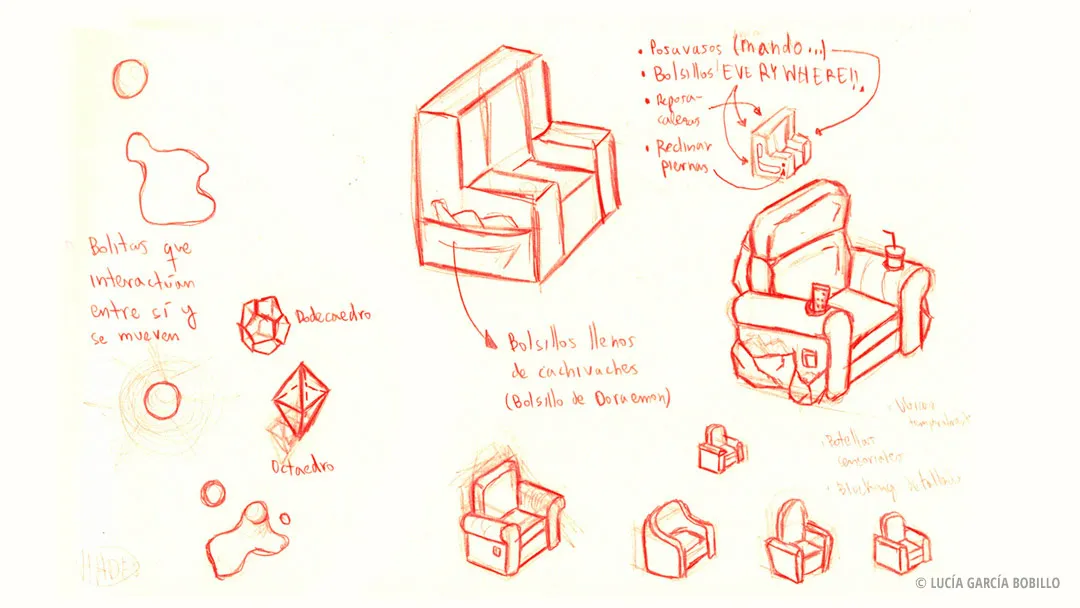 • Posavasos (mando...)
• Bolsillos EVERYWHERE!!
• Reposa-
cabezas
• Reclinar
piernas
Bolitas que
interactúan
entre sí y
se mueven
Dodecaedro
Octaedro
Bolsillos llenos
de cachivaches
(Bolsillo de Doraemon)
• Botellas
sensoriales
• Blocking
© LUCÍA GARCÍA BOBILLO